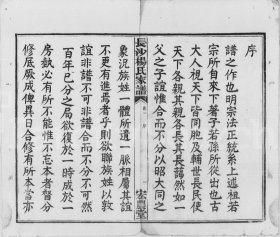 序
譜之作也明宗法正統系上述祖若
宗所自來下著子若孫所從出也古
大人視天下皆同胞及輔世長民使
天下各親其親各長其長藹然如一
父之子誼惟合而不分以昭大同之
長沙楊氏家譜
序
象況族姓一體所遺一脈相屬其誼
不更有進焉者乎則欲聯族姓以敦
誼非譜不可非譜合而不分不可然
百年已分之局欲復于一時成於一
房埶必有所不能惟不忘本者督分
修底厥成俾異日合修有所本焉亦